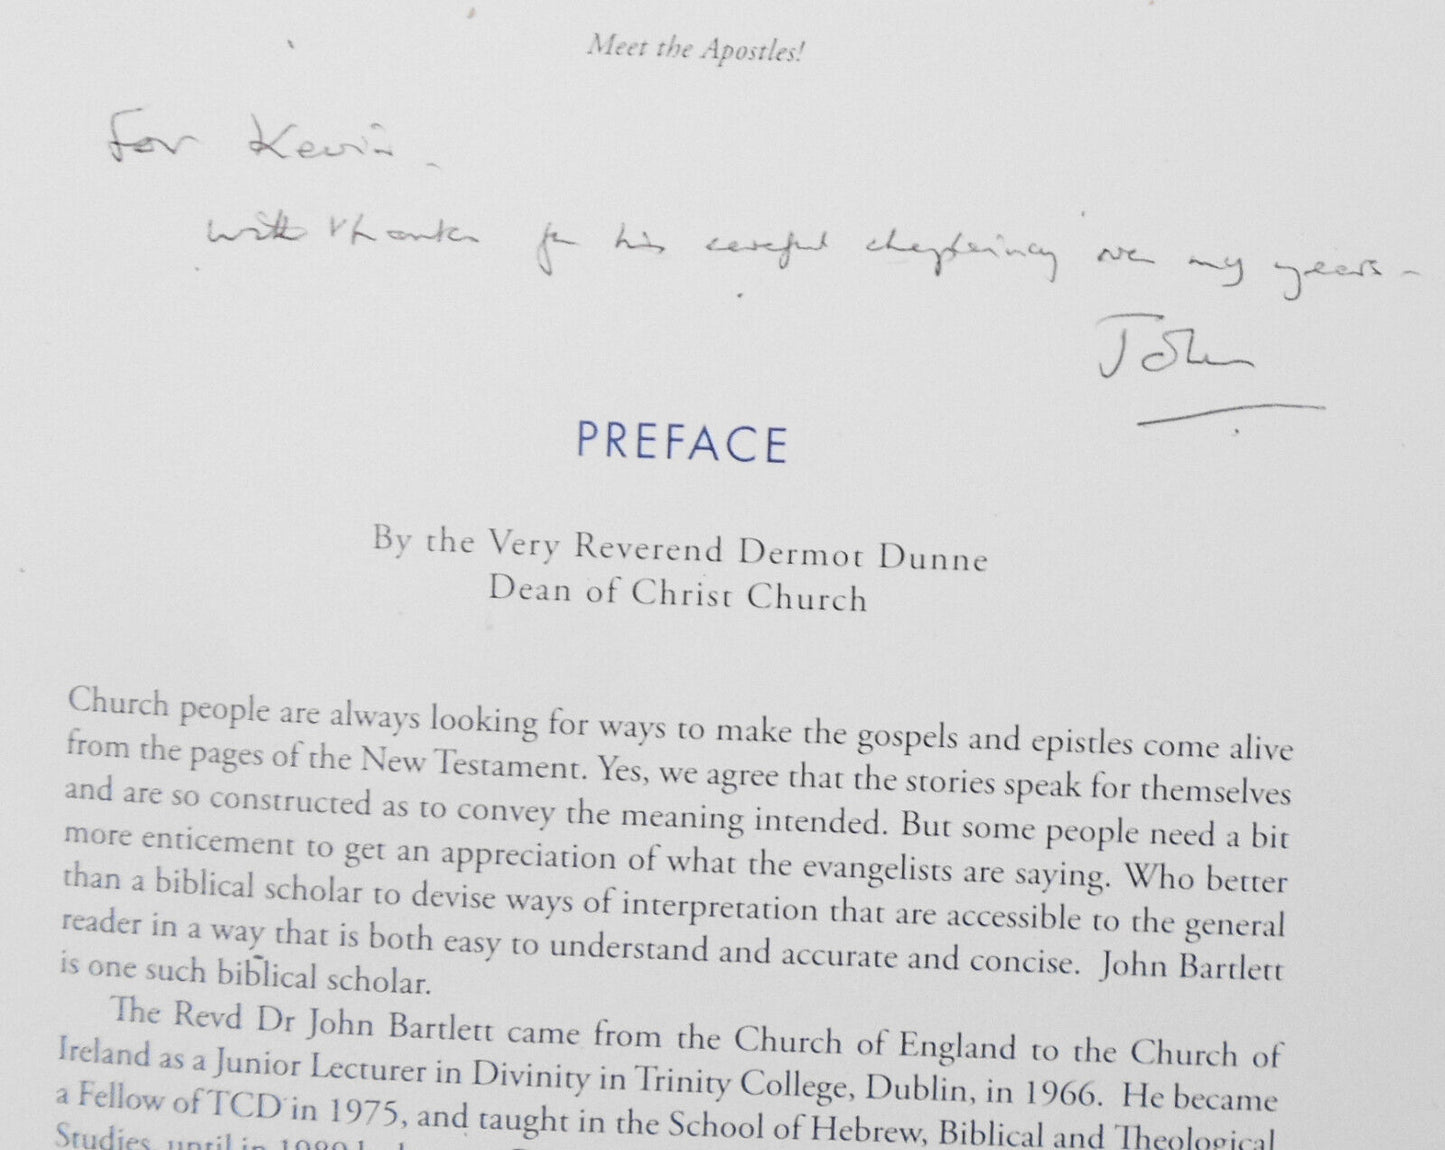 Meet the Apostles!
For Kevin -
with thanks for his careful chaplaincy over my years -
John
PREFACE
By the Very Reverend Dermot Dunne
Dean of Christ Church
Church people are always looking for ways to make the gospels and epistles come alive
from the pages of the New Testament. Yes, we agree that the stories speak for themselves
and are so constructed as to convey the meaning intended. But some people need a bit
more enticement to get an appreciation of what the evangelists are saying. Who better
than a biblical scholar to devise ways of interpretation that are accessible to the general
reader in a way that is both easy to understand and accurate and concise. John Bartlett
is one such biblical scholar.
The Revd Dr John Bartlett came from the Church of England to the Church of
Ireland as a Junior Lecturer in Divinity in Trinity College, Dublin, in 1966. He became
a Fellow of TCD in 1975, and taught in the School of Hebrew, Biblical and Theological
Studies, until in